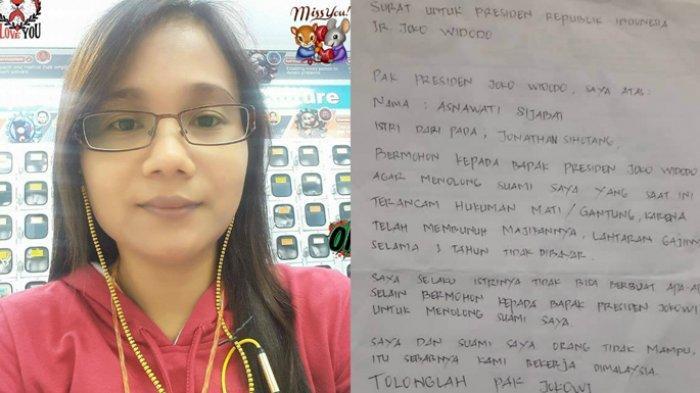 LOVE YOU
Miss You!
SURAT UNTUK PRESIDEN REPUBLIK INDONESIA
IR JOKO WIDODO
PAK PRESIDEN JOKO WIDODO, SAYA ATAS:
NAMA : ASNAWATI SIJABAT
ISTRI DARI PADA, JONATHAN SIHOTANG,
BERMOHON KEPADA BAPAK PRESIDEN JOKO WIDODO
AGAR MENOLONG SUAMI SAYA YANG SAAT INI
TERANCAM HUKUMAN MATI/GANTUNG, KARENA
TELAH MEMBUNUH MAJIKANNYA, LANTARAN GAJINY
SELAMA 3 TAHUN TIDAK DIBAYAR.
SAYA SELAKU ISTRINYA TIDAK BISA BERBUAT APA-AP
SELAIN BERMOHON KEPADA BAPAK PRESIDEN JOKOWI
UNTUK MENOLONG SUAMI SAYA.
SAYA DAN SUAMI SAYA ORANG TIDAK MAMPU,
ITU SEBABNYA KAMI BEKERJA DIMALAYSIA.
TOLONGLAH PAK JOKOWI